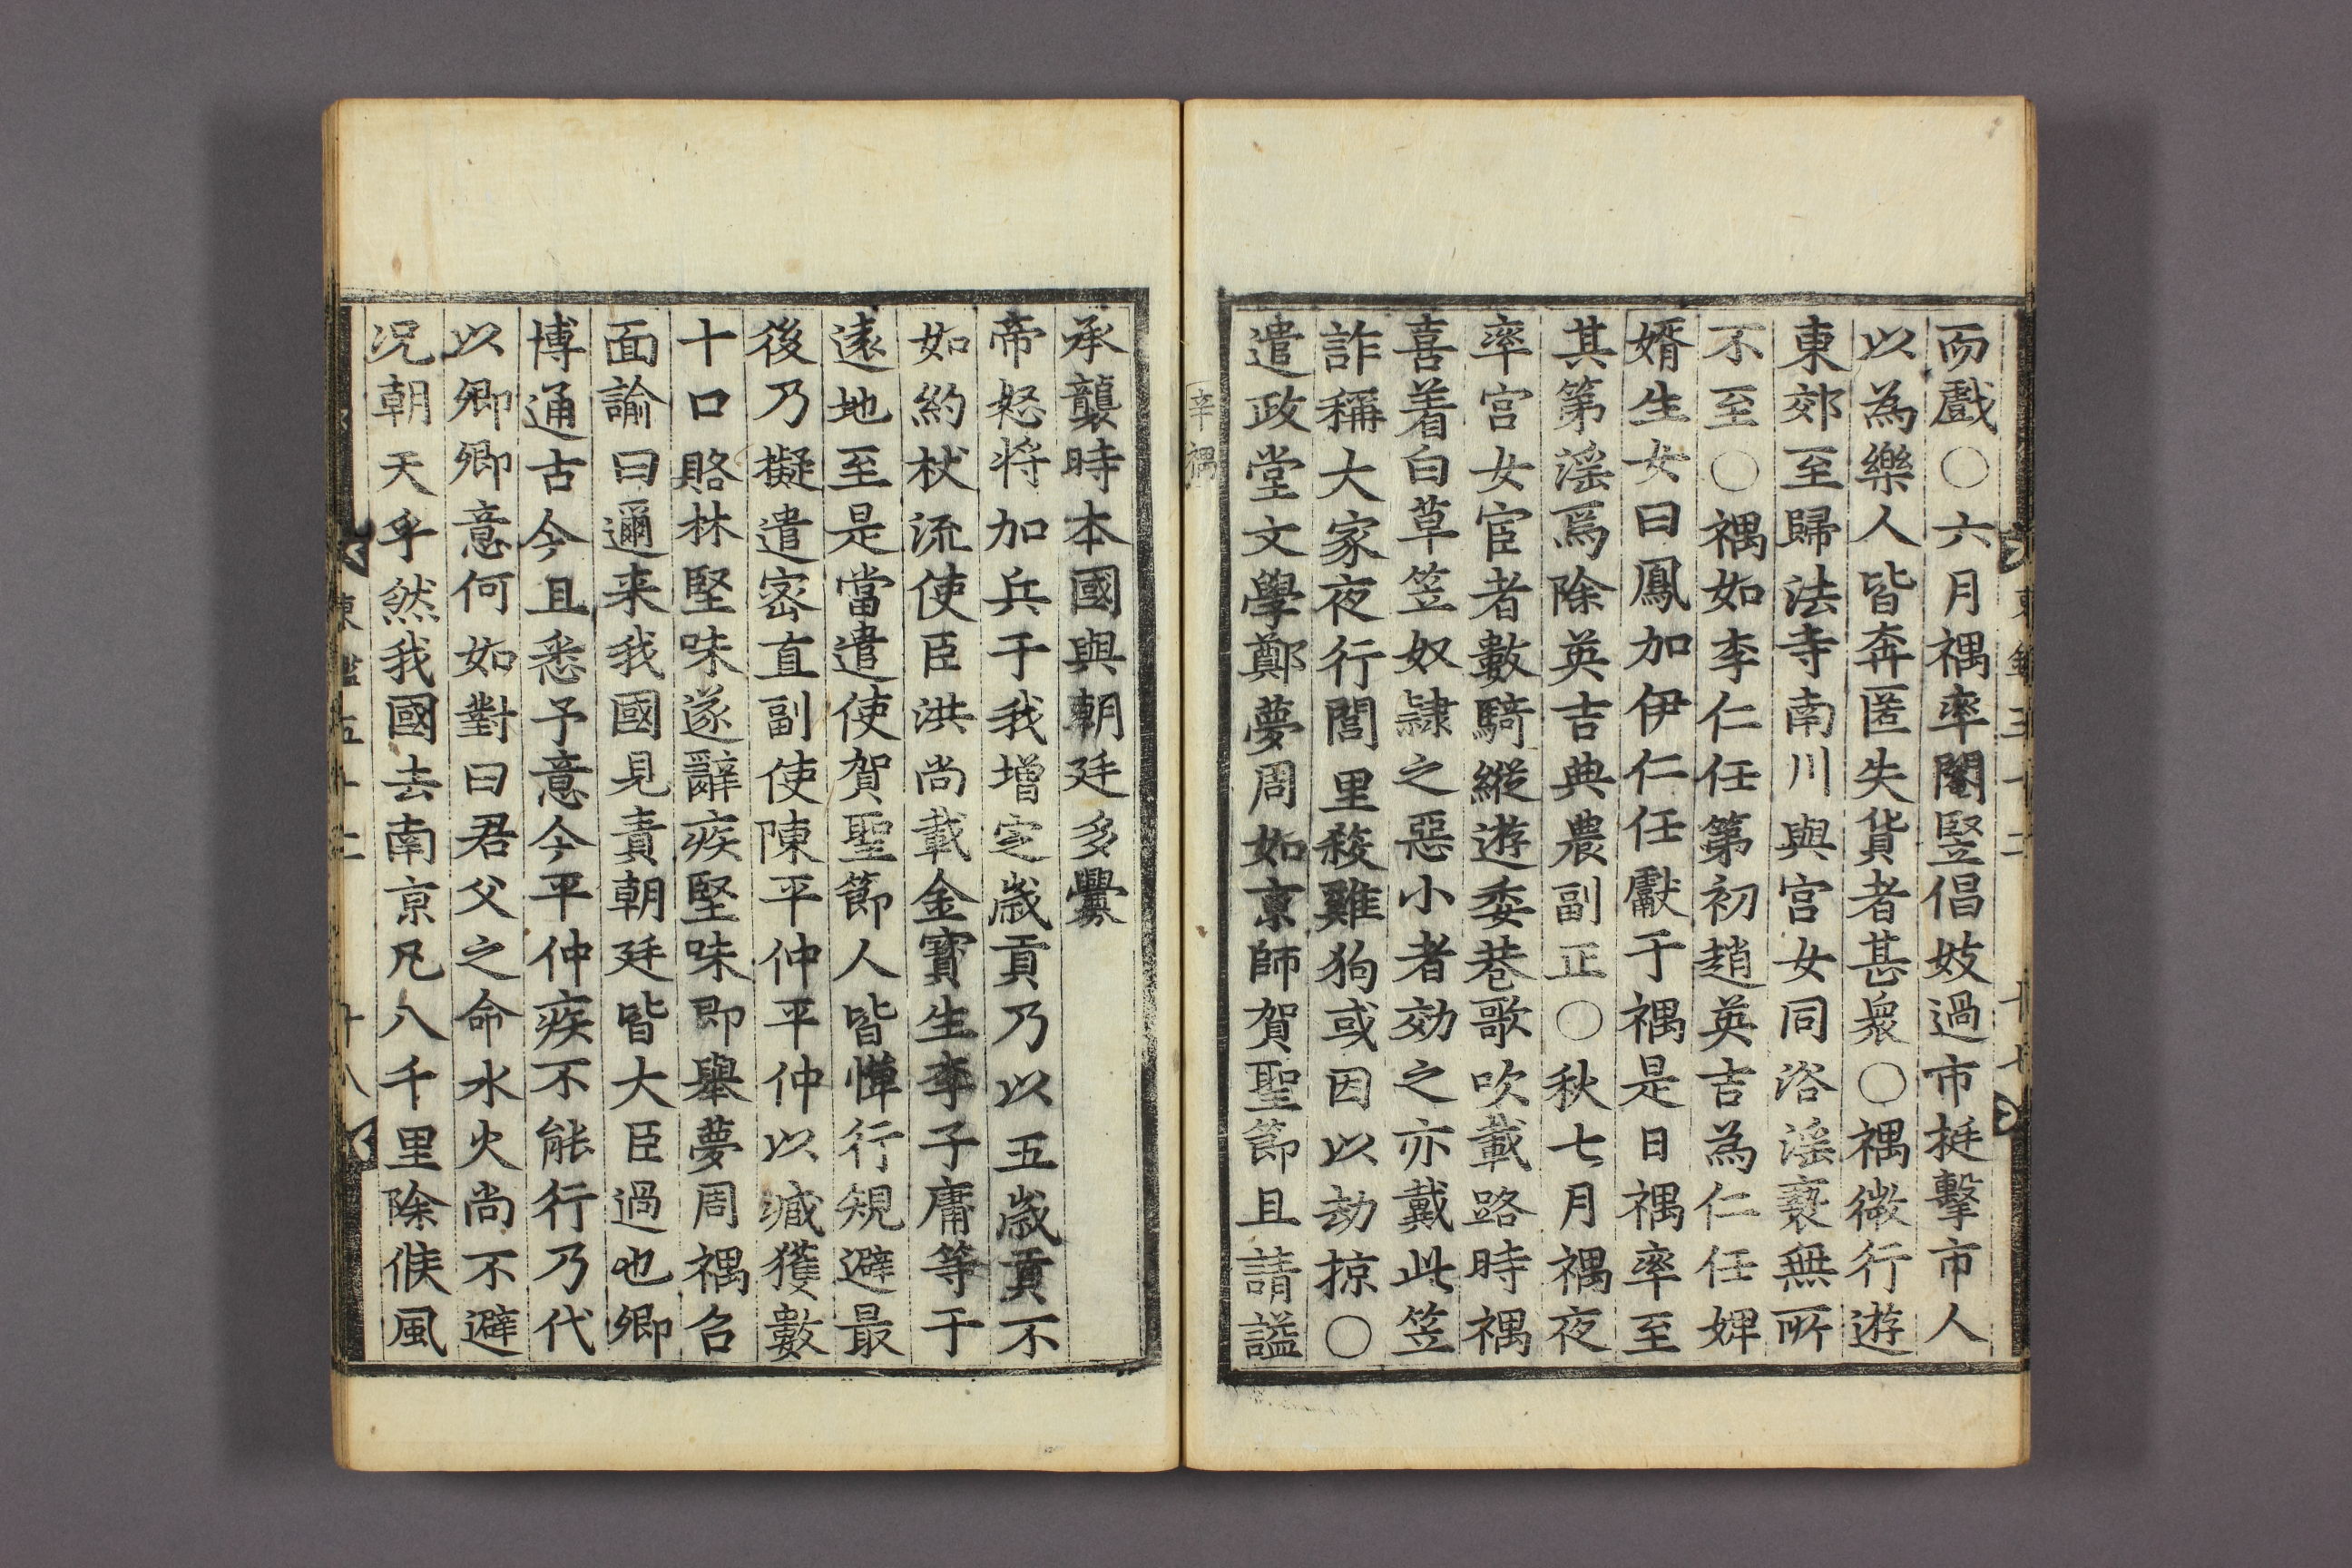 而戲○六月禑率閹竪倡妓過市挺擊市人
以為樂人皆奔匿失貨者甚衆○禑微行遊
東郊至歸法寺南川與宫女同浴滛褻無所
不至○禑如李仁任第初趙英吉為仁任婢
婿生女曰鳳加伊仁任獻于禑是日禑率至
其第滛焉除英吉典農副正○秋七月禑夜
率宫女宦者數騎縱遊委巷歌吹載路時禑
喜着白草笠奴隷之惡小者効之亦戴此笠
詐稱大家夜行閭里殺雞狗或因以劫掠○
遣政堂文學鄭夢周如京師賀聖節且請謚
辛禑
承襲時本國與朝廷多釁
帝怒將加兵于我增定歳貢乃以五歳貢不
如約杖流使臣洪尚載金寳生李子庸等于
遠地至是當遣使賀聖節人皆憚行規避最
後乃擬遣密直副使陳平仲平仲以臧獲數
十口賂林堅味遂辭疾堅味即舉夢周禑召
面諭曰邇来我國見責朝廷皆大臣過也卿
博通古今且悉予意今平仲疾不能行乃代
以卿卿意何如對曰君父之命水火尚不避
况朝天乎然我國去南京凡八千里除候風